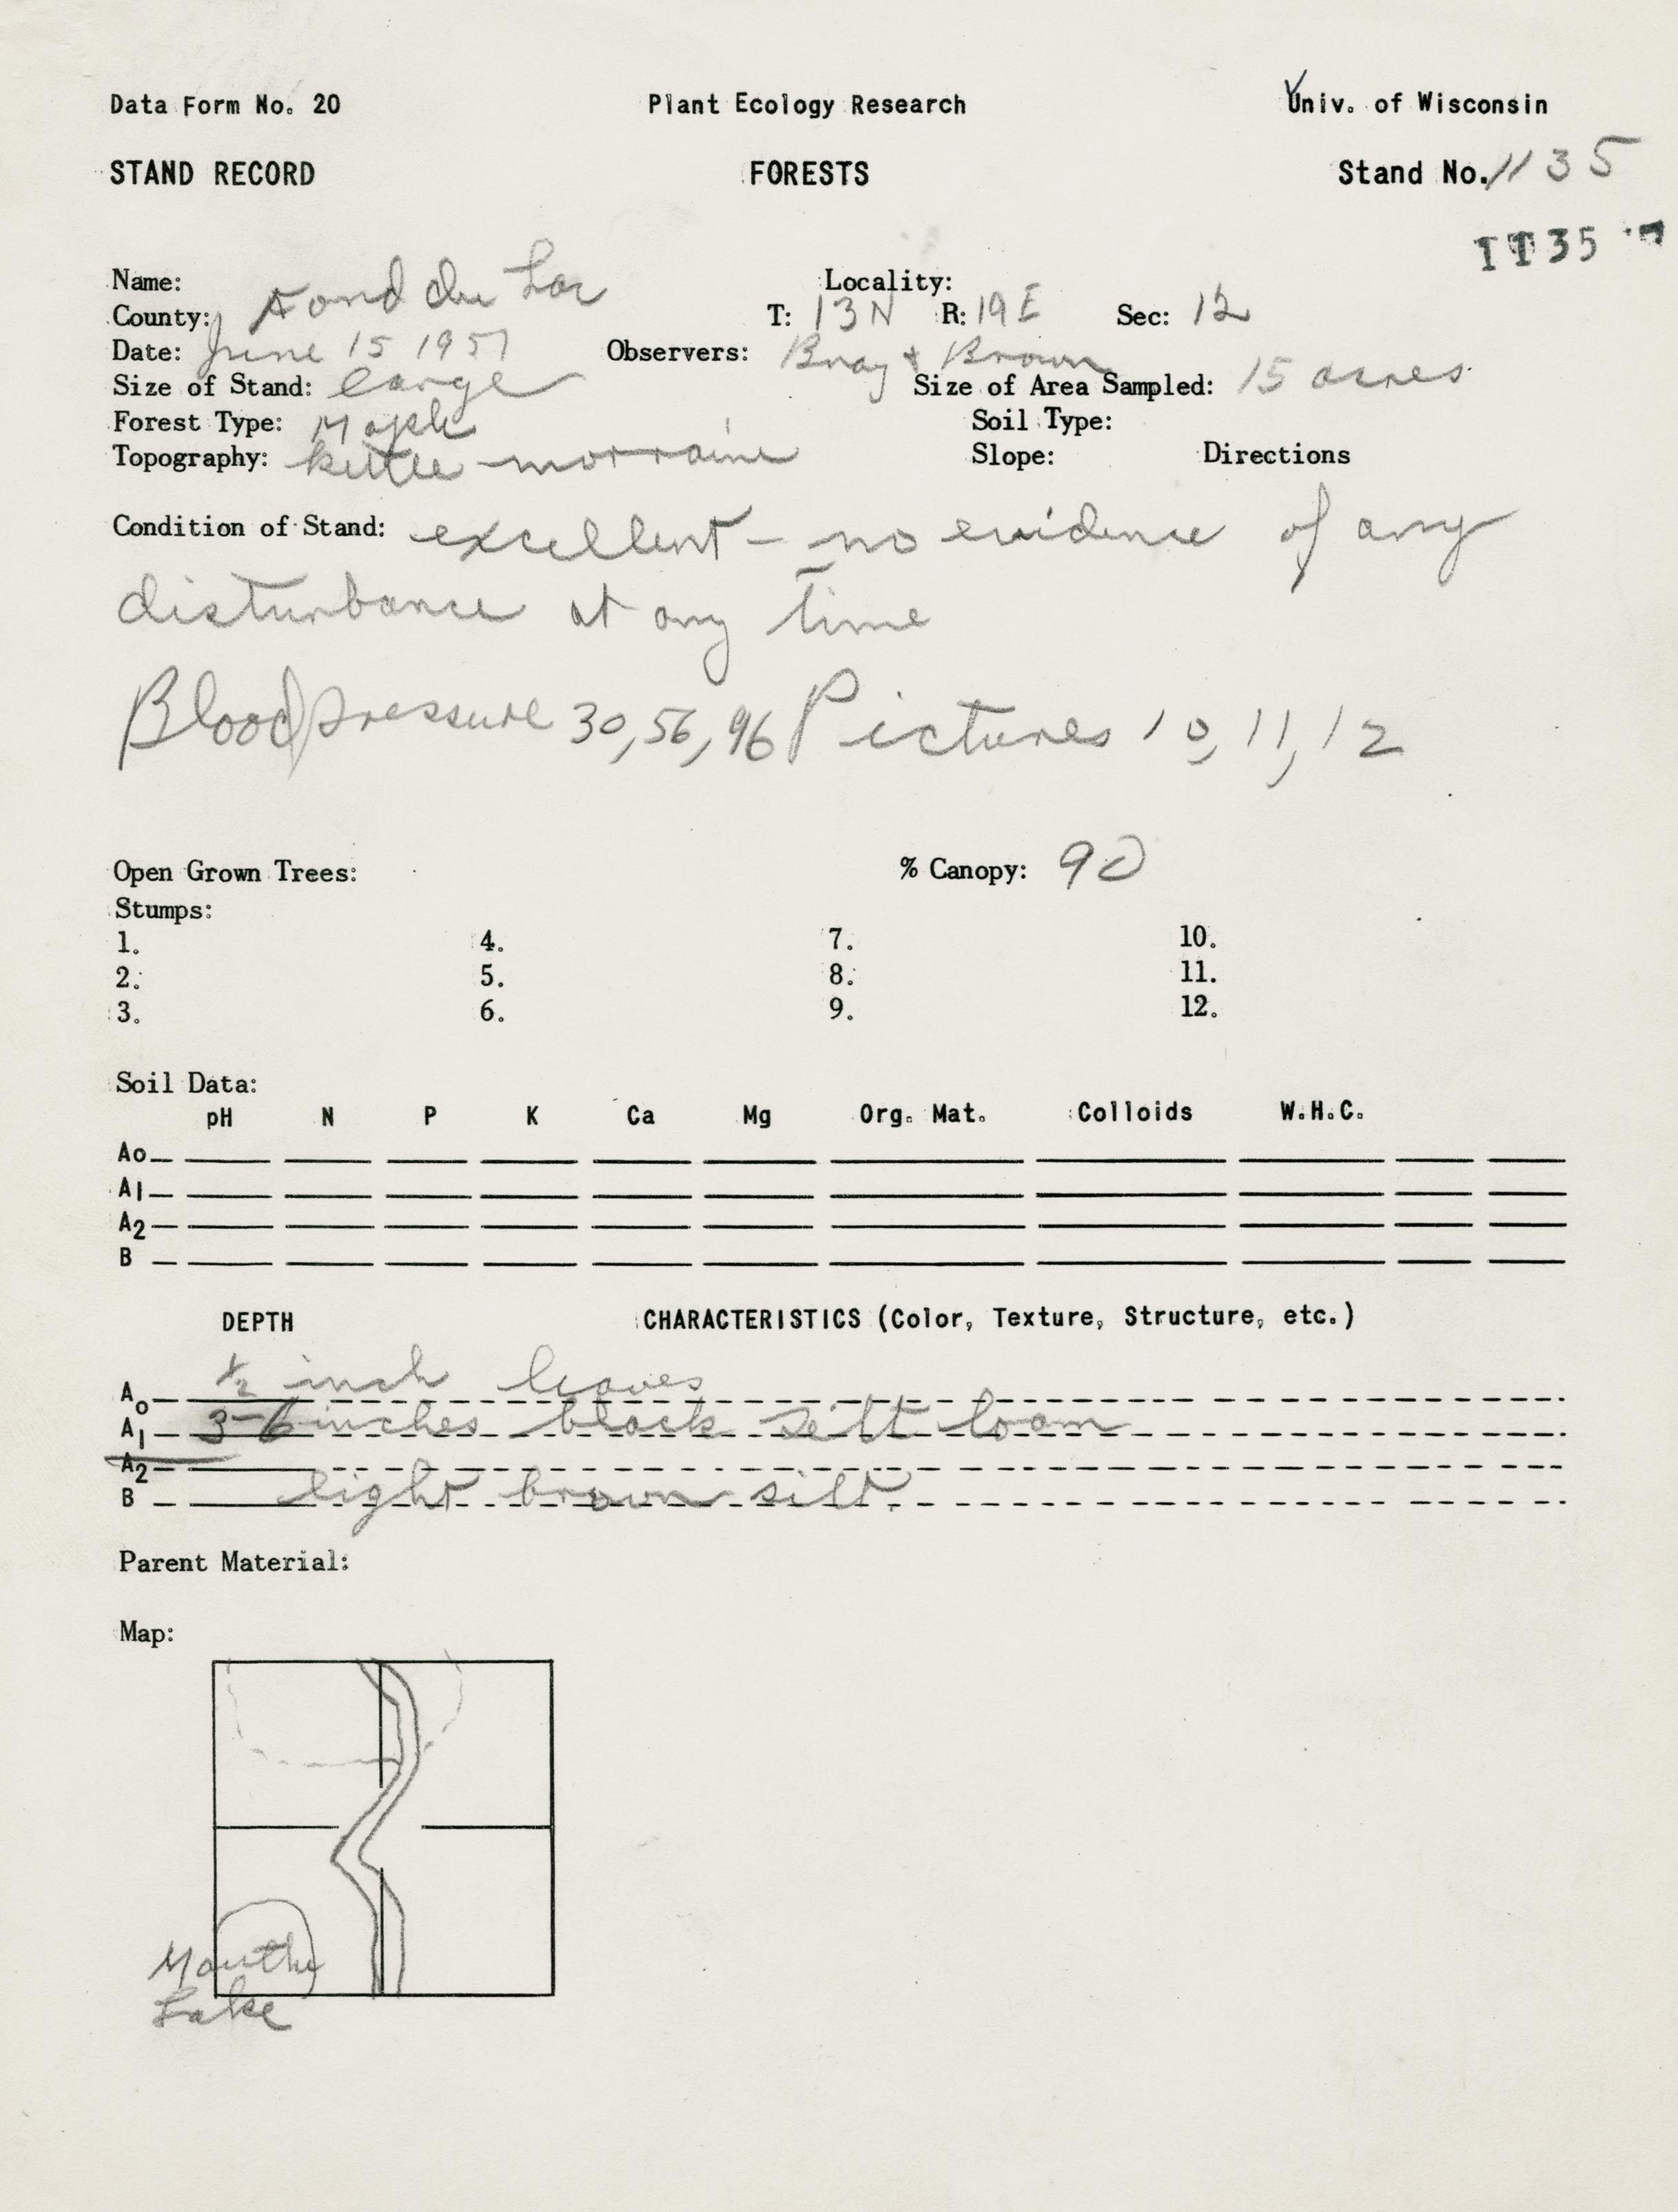 Data Form No. 20 Plant Ecology Research Univ. of Wisconsin
STAND RECORD FORESTS Stand No. 1135
1135
Name: Locality:
County: Fond du Lac T: 13N R: 19E Sec: 12
Date: June 15 1957 Observers: Bray + Brown
Size of Stand: large Size of Area Sampled: 15 acres
Forest Type: Maple Soil Type:
Topography: kettle-morraine Slope: Directions
Condition of Stand: excellent - no evidence of any
disturbance at any time
Blood pressure 30, 56, 96 Pictures 10, 11, 12
Open Grown Trees: % Canopy: 90
Stumps:
1. 4. 7. 10.
2. 5. 8. 11.
3. 6. 9. 12.
Soil Data:
pH N P K Ca Mg Org. Mat. Colloids W.H.C.
Ao
A1
A2
B
DEPTH CHARACTERISTICS (Color, Texture, Structure, etc.)
Ao 1/2 inch leaves
A1 3-6 inches black silt loam
A2
B light brown silt
Parent Material:
Map:
Mauthe
Lake